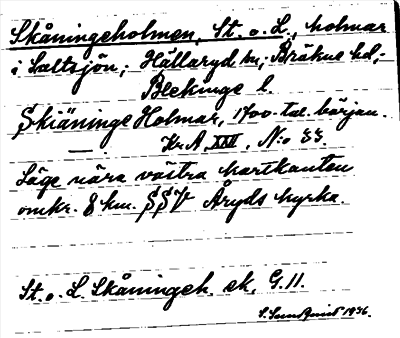 Skåningeholmen, St. o. L., holmar
i Saltsjön; Hällaryd sn; Bräkne hd;
Blekinge l.
Skiäninge Holmar, 1700-tal. början.
— . Kr. A XXI, N:o 33.
Läge nära västra kartkanten
omkr. 8 km. SSV Åryds kyrka.
St. o. L. Skåningeh. ek. G. 11.
S. Sundquist 1936.